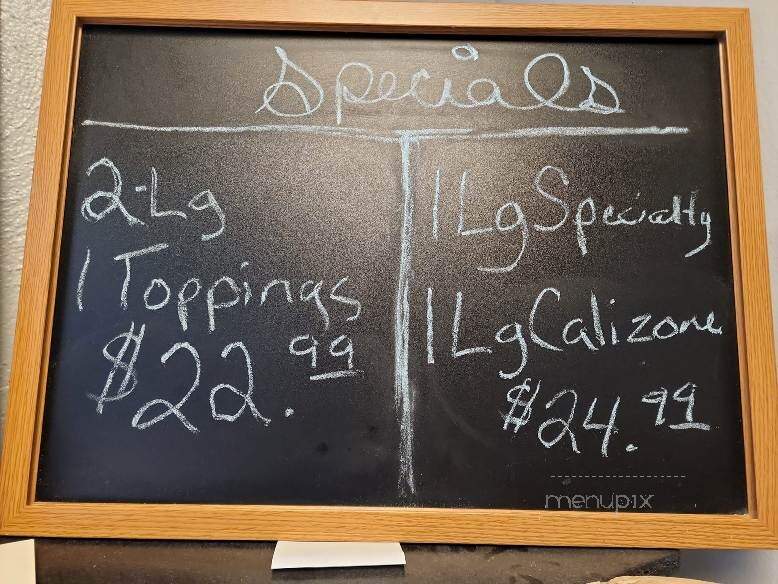 Specials
2-Lg
1 Toppings
$22.99
1 Lg Specialty
1 Lg Calizone
$24.99
menupix